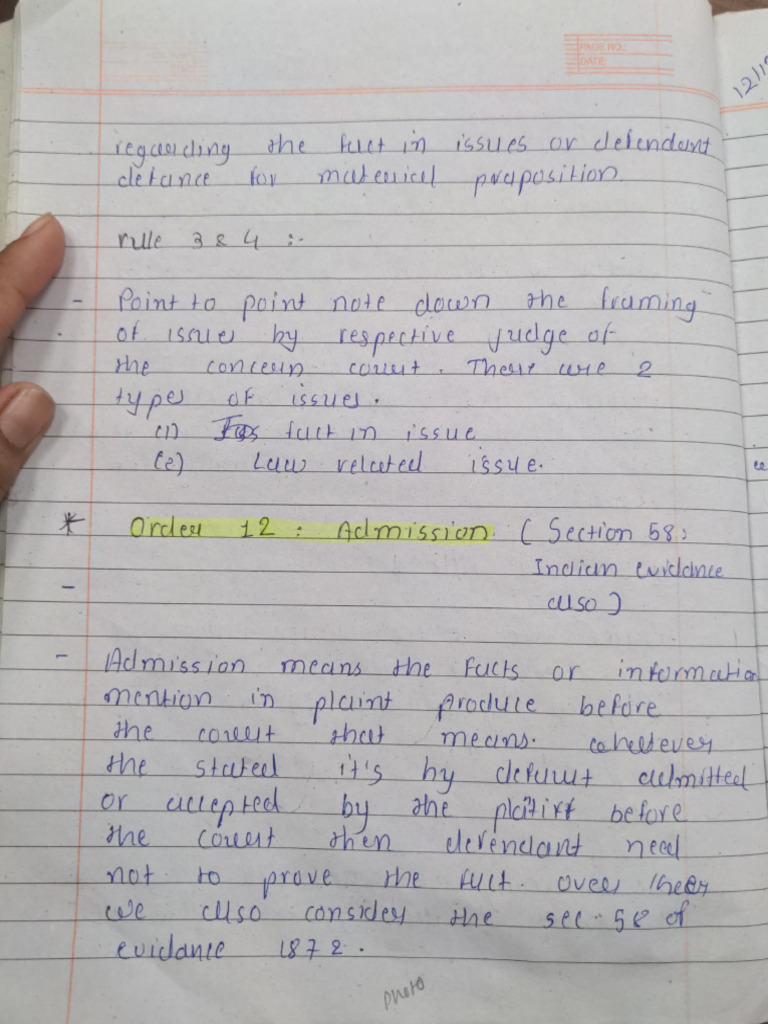 PAGE NO.:
DATE:
12/1
regarding the fact in issues or defendant
defance for material praposition.
rule 3 & 4 :-
- Point to point note down the framing
of issues by respective judge of
the concern court. There are 2
types of issues.
(1) fact in issue
(2) Law related issue.
* Order 12 : Admission. (Section 58:
Indian evidance
also)
-
- Admission means the facts or information
mention in plaint produce before
the court that means. whatever
the stated it's by default admitted
or accepted by the platiff before
the court then defendant need
not to prove the fact. over heer
we also consider the sec. 58 of
evidance 1872.
photo